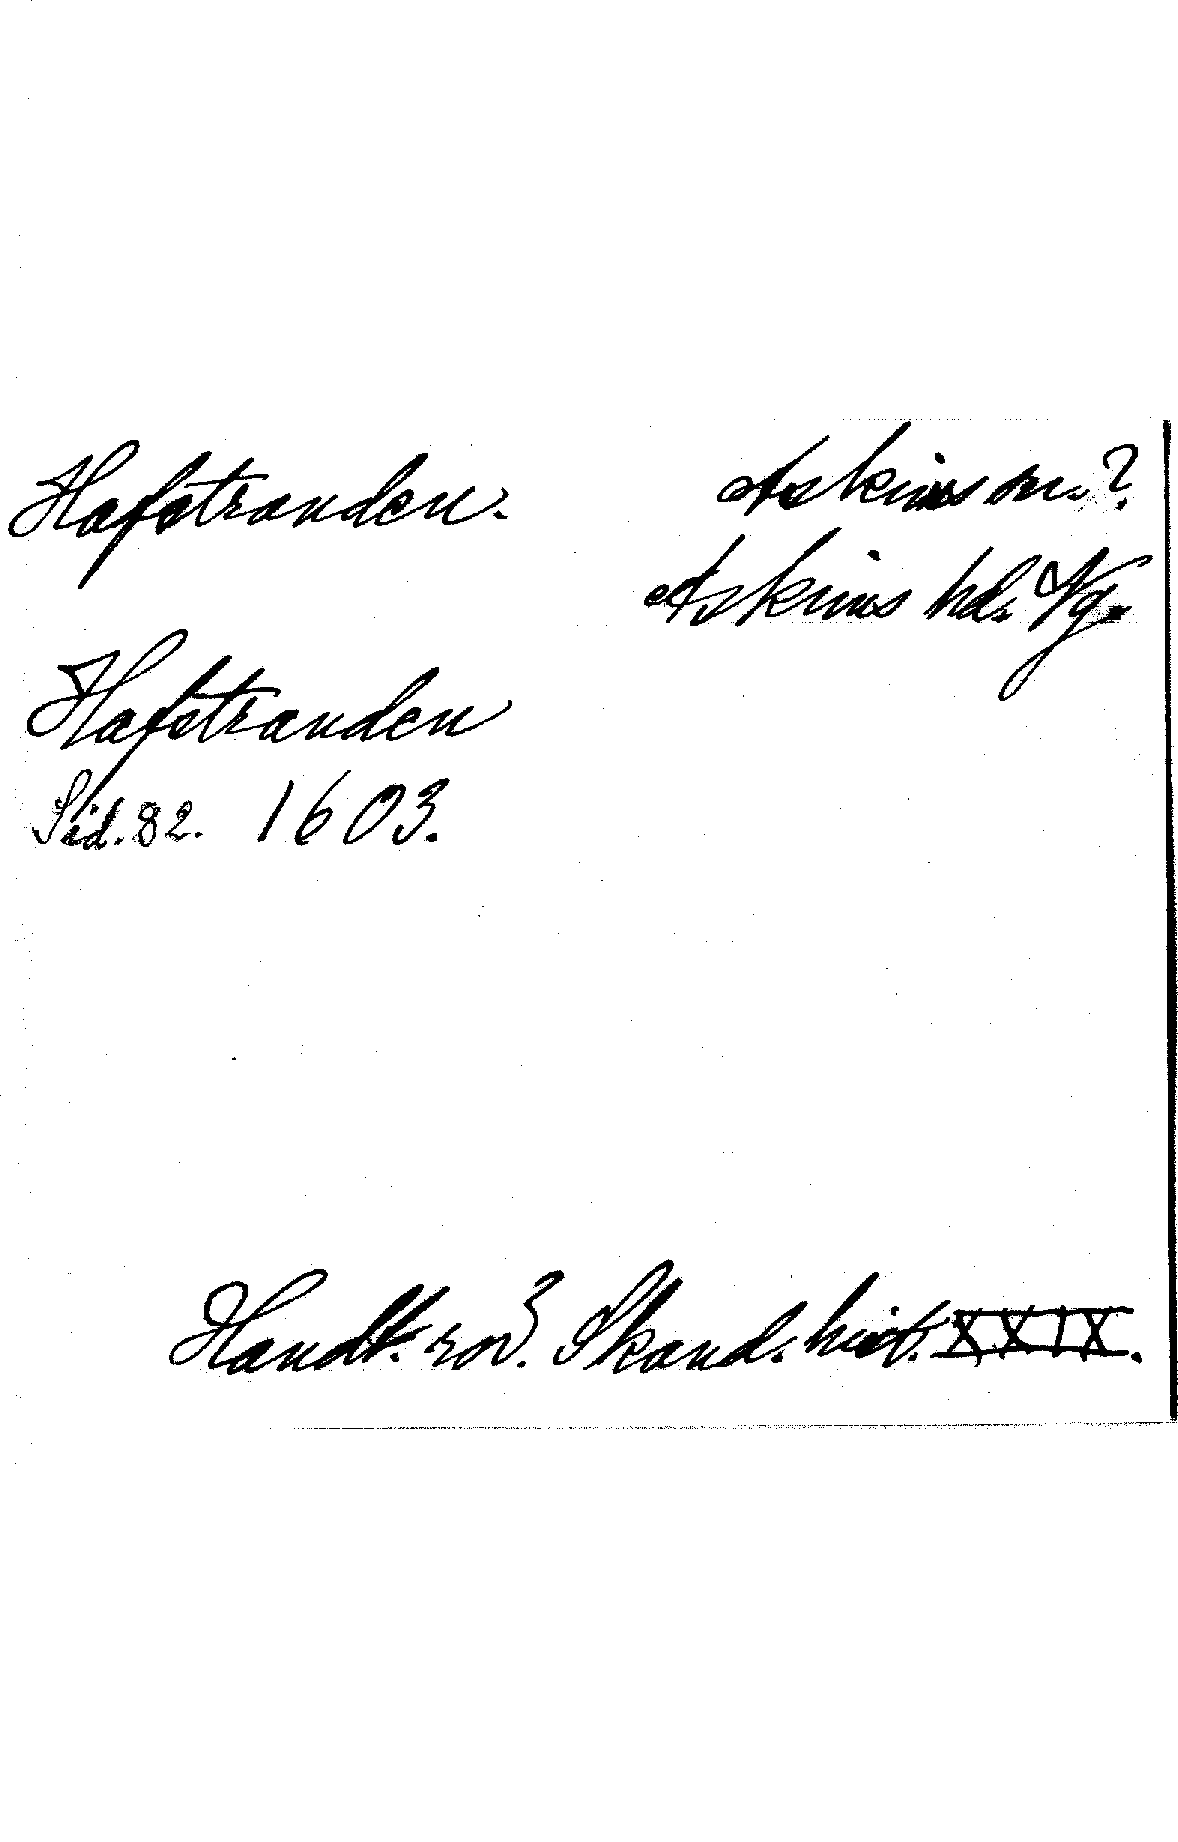 Hafstranden.
Askims sn.?
Askims hd. Vg.
Hafstranden
Sid. 82. 1603.
Handl. rör. Skand. hist. XXIX.